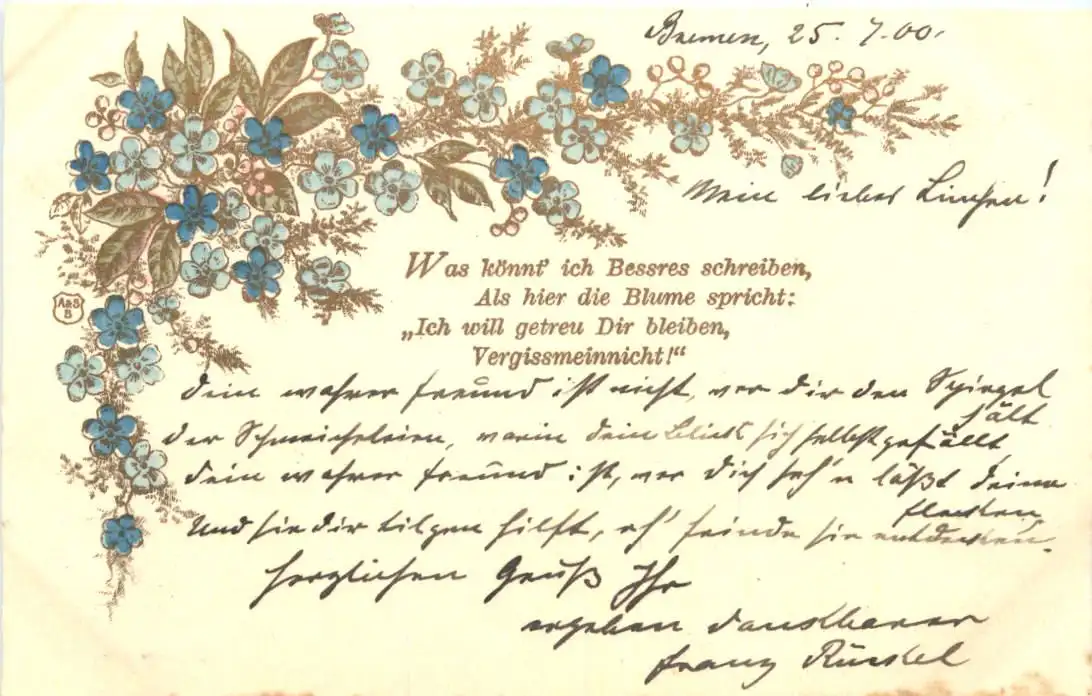 Bremen, 25. 7.00.
Mein liebes Linchen!
Was könnt' ich Bessres schreiben,
Als hier die Blume spricht:
„Ich will getreu Dir bleiben,
Vergissmeinnicht!“
A&S
B
Dein wahrer Freund ist nicht, wer dir den Spiegel
hält
der Schmeicheleien, worin dein Blick sich selbst gefällt,
dein wahrer Freund ist, wer dich seh'n läßt deine
Flecken
Und sie dir tilgen hilft, eh' Feinde sie entdecken.
Herzlichen Gruß Ihr
ergeben dankbarer
Franz